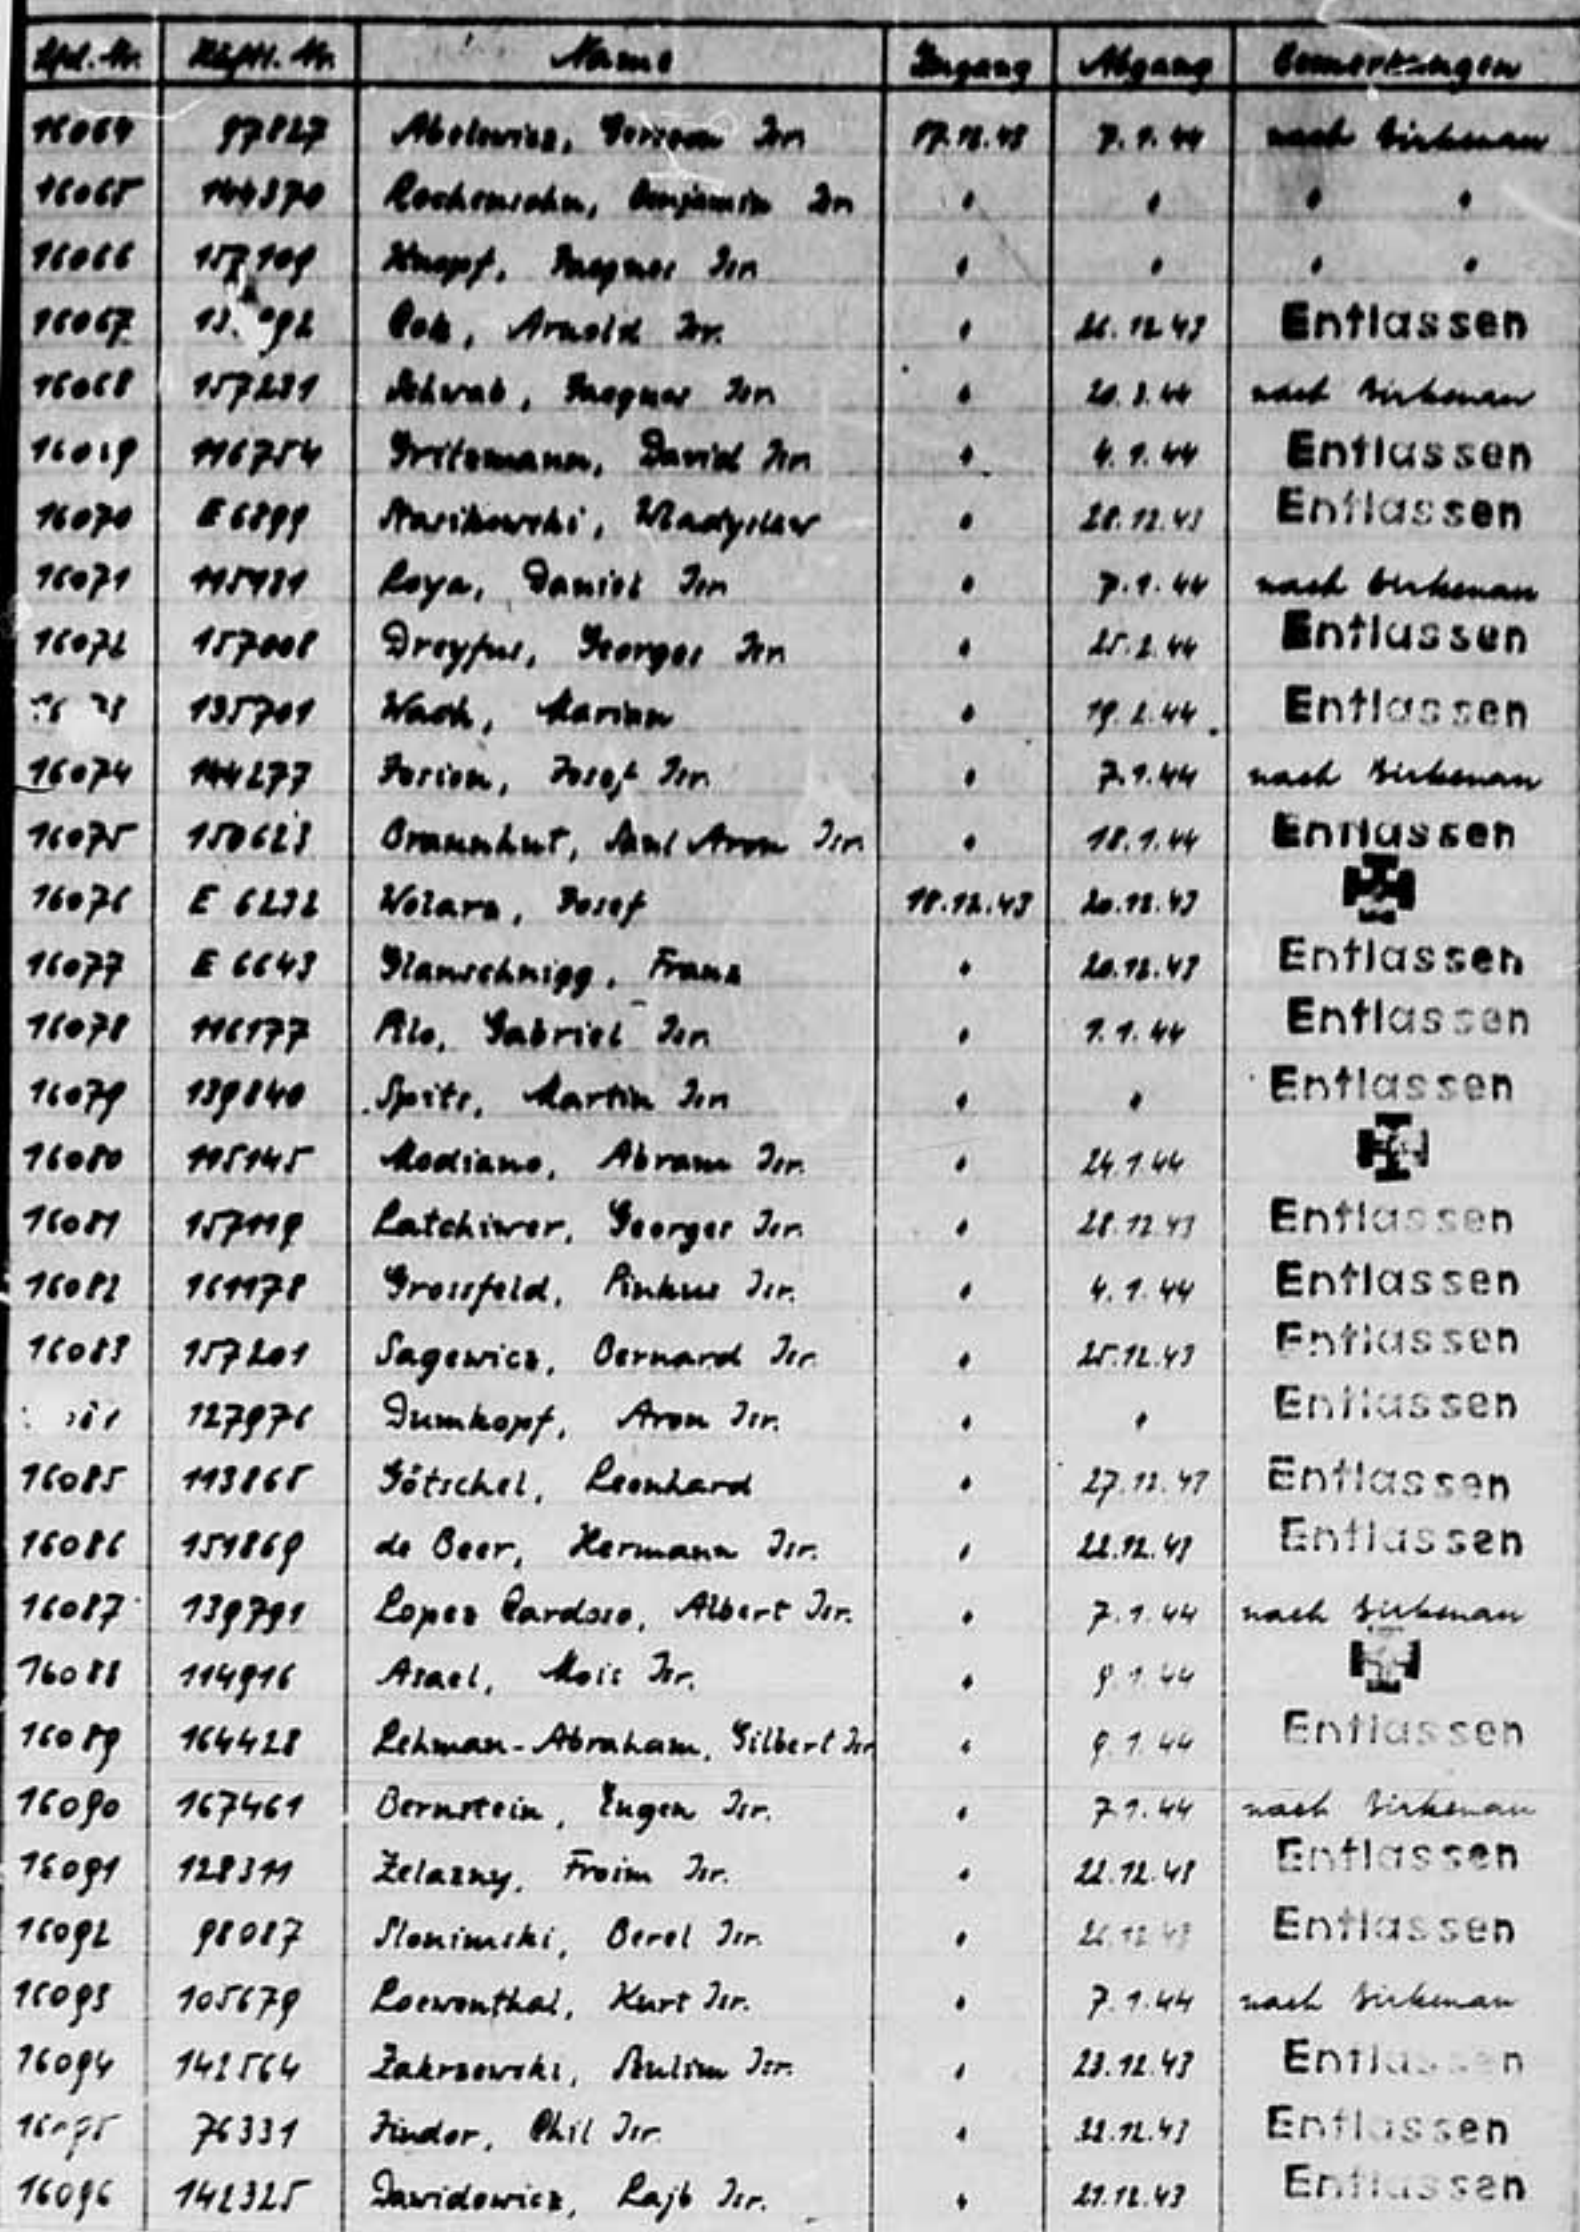 Lfd. Nr. Häftl. Nr. Name Zugang Abgang Bemerkungen
16064 97827 Abelewicz, Isr. 17.12.43 7.1.44 nach Birkenau
16065 144370 Rochensohn, Benjamin Isr. " " " "
16066 157109 Knopf, Isr. " " " "
16067 Cok, Arnold Isr. " 21.12.43 Entlassen
16068 157231 Schwab, Isr. " 20.3.44 nach Birkenau
116754 Gritzmann, David Isr. " 4.1.44 Entlassen
16070 E 6899 Stasikowski, Wladyslaw " 28.12.43 Entlassen
16071 115131 Roya, Daniel Isr. " 7.1.44 nach Birkenau
16072 157008 Dreyfus, Georges Isr. " 25.2.44 Entlassen
135701 Wach, Marian " 19.2.44 Entlassen
16074 144277 Josef Isr. " 7.1.44 nach Birkenau
16075 150623 Braunhut, Saul Aron Isr. " 18.1.44 Entlassen
16076 E 6232 Wozara, Josef 18.12.43 20.12.43
16077 E 6643 Glanschnigg, Franz " 20.12.43 Entlassen
16078 116177 Pilo, Gabriel Isr. " 1.1.44 Entlassen
16079 139840 Spitz, Martin Isr. " " Entlassen
16080 115145 Modiano, Abram Isr. " 24.1.44
16081 157119 Latchiwer, Georges Isr. " 28.12.43 Entlassen
16082 161178 Grossfeld, Pinkus Isr. " 4.1.44 Entlassen
16083 157201 Sagewicz, Bernard Isr. " 25.12.43 Entlassen
127976 Dumkopf, Aron Isr. " " Entlassen
16085 113865 Götschel, Leonhard " 27.12.43 Entlassen
16086 151869 de Beer, Hermann Isr. " 22.12.43 Entlassen
16087 139791 Lopez Cardoso, Albert Isr. " 7.1.44 nach Birkenau
16088 114916 Asael, Mois Isr. " 9.1.44
16089 164428 Lehman-Abraham, Gilbert Isr " 9.1.44 Entlassen
16090 167461 Bernstein, Eugen Isr. " 7.1.44 nach Birkenau
16091 128311 Zelazny, Froim Isr. " 22.12.43 Entlassen
16092 98087 Slonimski, Berel Isr. " Entlassen
16093 105679 Loewenthal, Kurt Isr. " 7.1.44 nach Birkenau
16094 142564 Zakrzewski, Szulim Isr. " 23.12.43 Entlassen
76331 Finder, Chil Isr. " 22.12.43 Entlassen
16096 142325 Dawidowicz, Lajb Isr. " 21.12.43 Entlassen